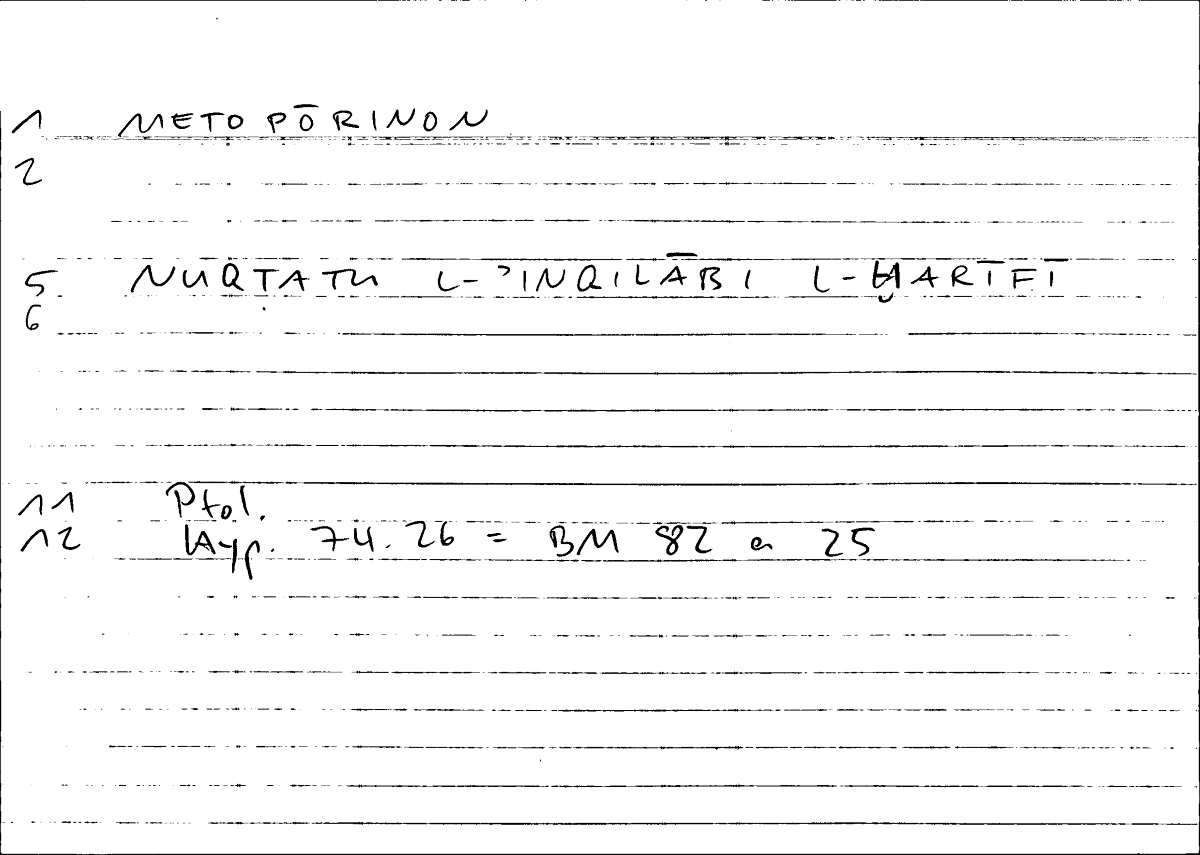 1 METOPŌRINON
2
5 NUQṬATU L-ʾINQILĀBI L-ḪARĪFĪ
6
11 Ptol.
12 Hyp. 74.26 = BM 82 a 25